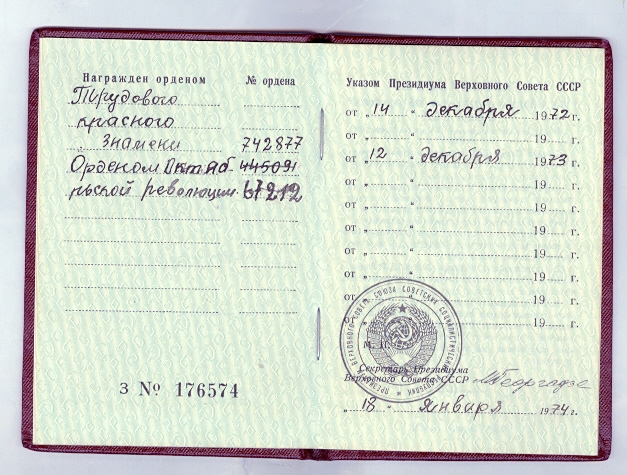 Награжден орденом
№ ордена
Трудового
красного
знамени 742877
Орденом Октяб-
рьской революции 67212
З № 176574
Указом Президиума Верховного Совета СССР
от „ 14 “ декабря 1972 г.
от „ “ 19 г.
от „ 12 “ декабря 1973 г.
от „ “ 19 г.
от „ “ 19 г.
от „ “ 19 г.
от „ “ 19 г.
от „ “ 19 г.
от „ “ 19 г.
от „ “ 19 г.
М. П.
Секретарь Президиума
Верховного Совета СССР МГеоргадзе
„ 18 “ января 1974 г.